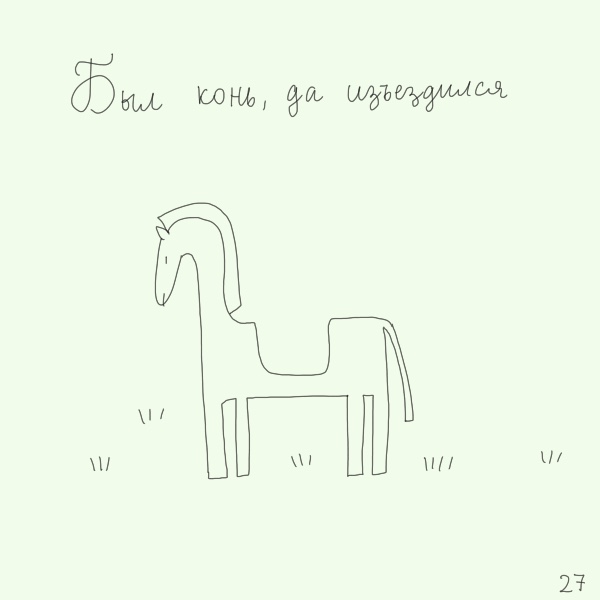 Был конь, да изъездился
27